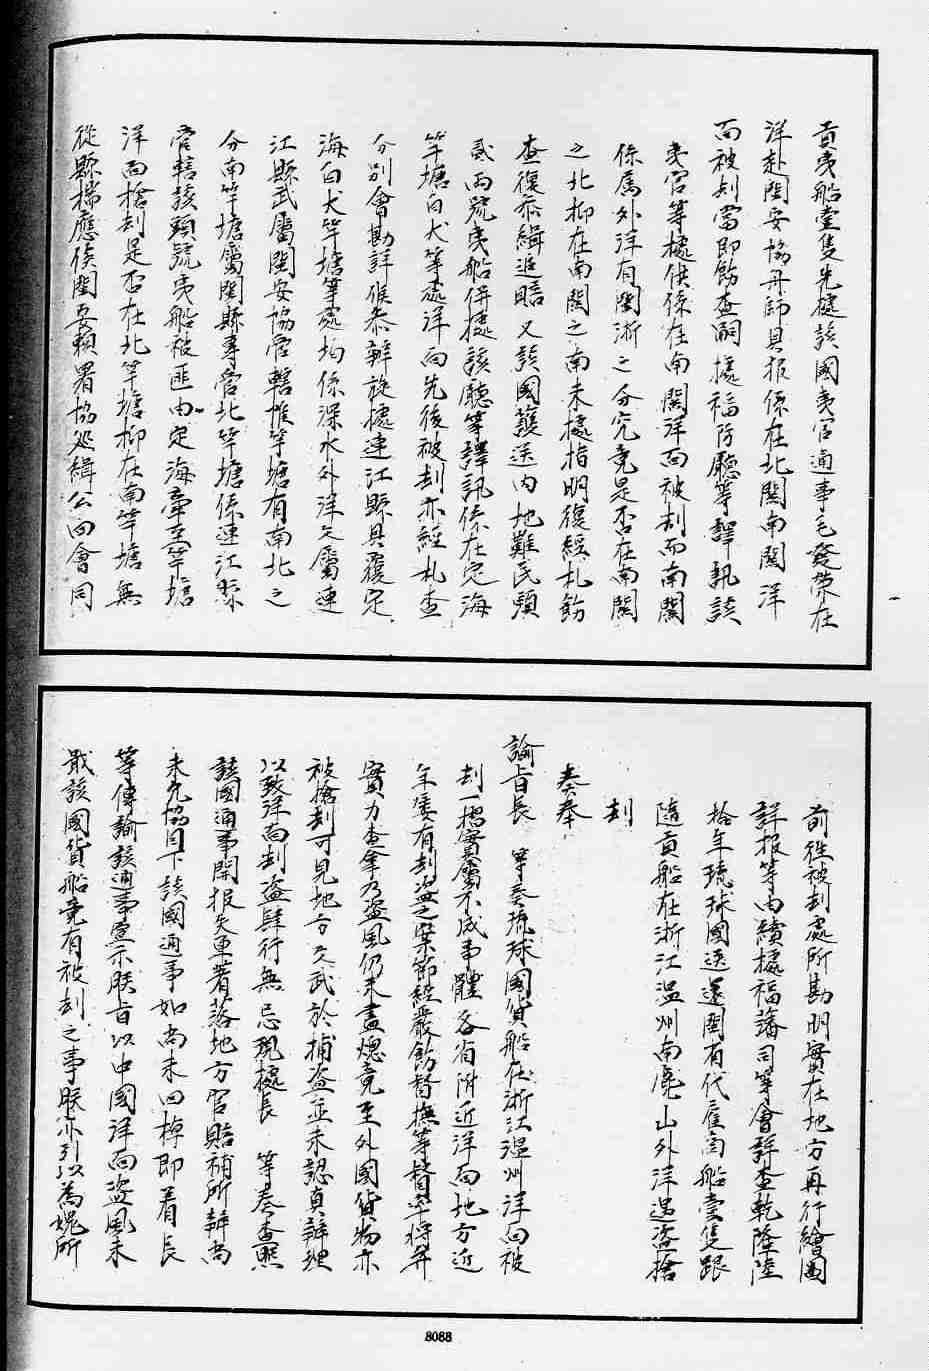 貢夷船壹隻先據該國夷官通事毛發榮在
洋赴閩安協丹師具报係在北關南關洋
面被刦當即飭查嗣據福防廳等譯訊該
夷官等據供係在南關洋面被刦而南關
係属外洋有閩浙之分究竟是否在南關
之北抑在南關之南未據指明復經札飭
查復示緝追賠又該國護送内地難民頭
貳两號夷船併據該廳等譯訊係在定海
竿塘白犬等處洋面先後被刦亦經札查
分别會勘詳候叅辦旋據連江縣具覆定
海白犬竿塘等處均係深水外洋文屬連
江縣武屬閩安協管轄惟竿塘有南北之
分南竿塘屬閩縣專管北竿塘係連江縣
管轄該頭號夷船被匪由定海牽至竿塘
洋面搶刦是否在北竿塘抑在南竿塘無
從縣揣應俟閩委賴署協廵緝公回會同
前往被刦處所勘明實在地方再行繪圖
詳报等由續據福藩司等會詳查乾隆陸
拾年琉球國送還閩有代雇商船壹隻跟
隨貢船在浙江温州南麂山外洋遇盗搶
刦
奏奉
諭旨長　等奏琉球國貨船在浙江温州洋面被
刦一摺實屬不成事體各省附近洋面地方近
年屢有刦盗之案節經嚴飭督撫等督率将弁
實力查拿乃盗風仍未盡熄竟至外國貨物亦
被搶刦可見地方文武於捕盗並未認真辦理
以致洋面刦盗肆行無忌現據長　等奏查照
該國通事開报失单著落地方官賠補所辦尚
未允協目下該國通事如尚未回棹即着長
等傳諭該通事宣示朕旨以中國洋面盗風未
戢該國貨船竟有被刦之事朕亦引以為媿所
8088